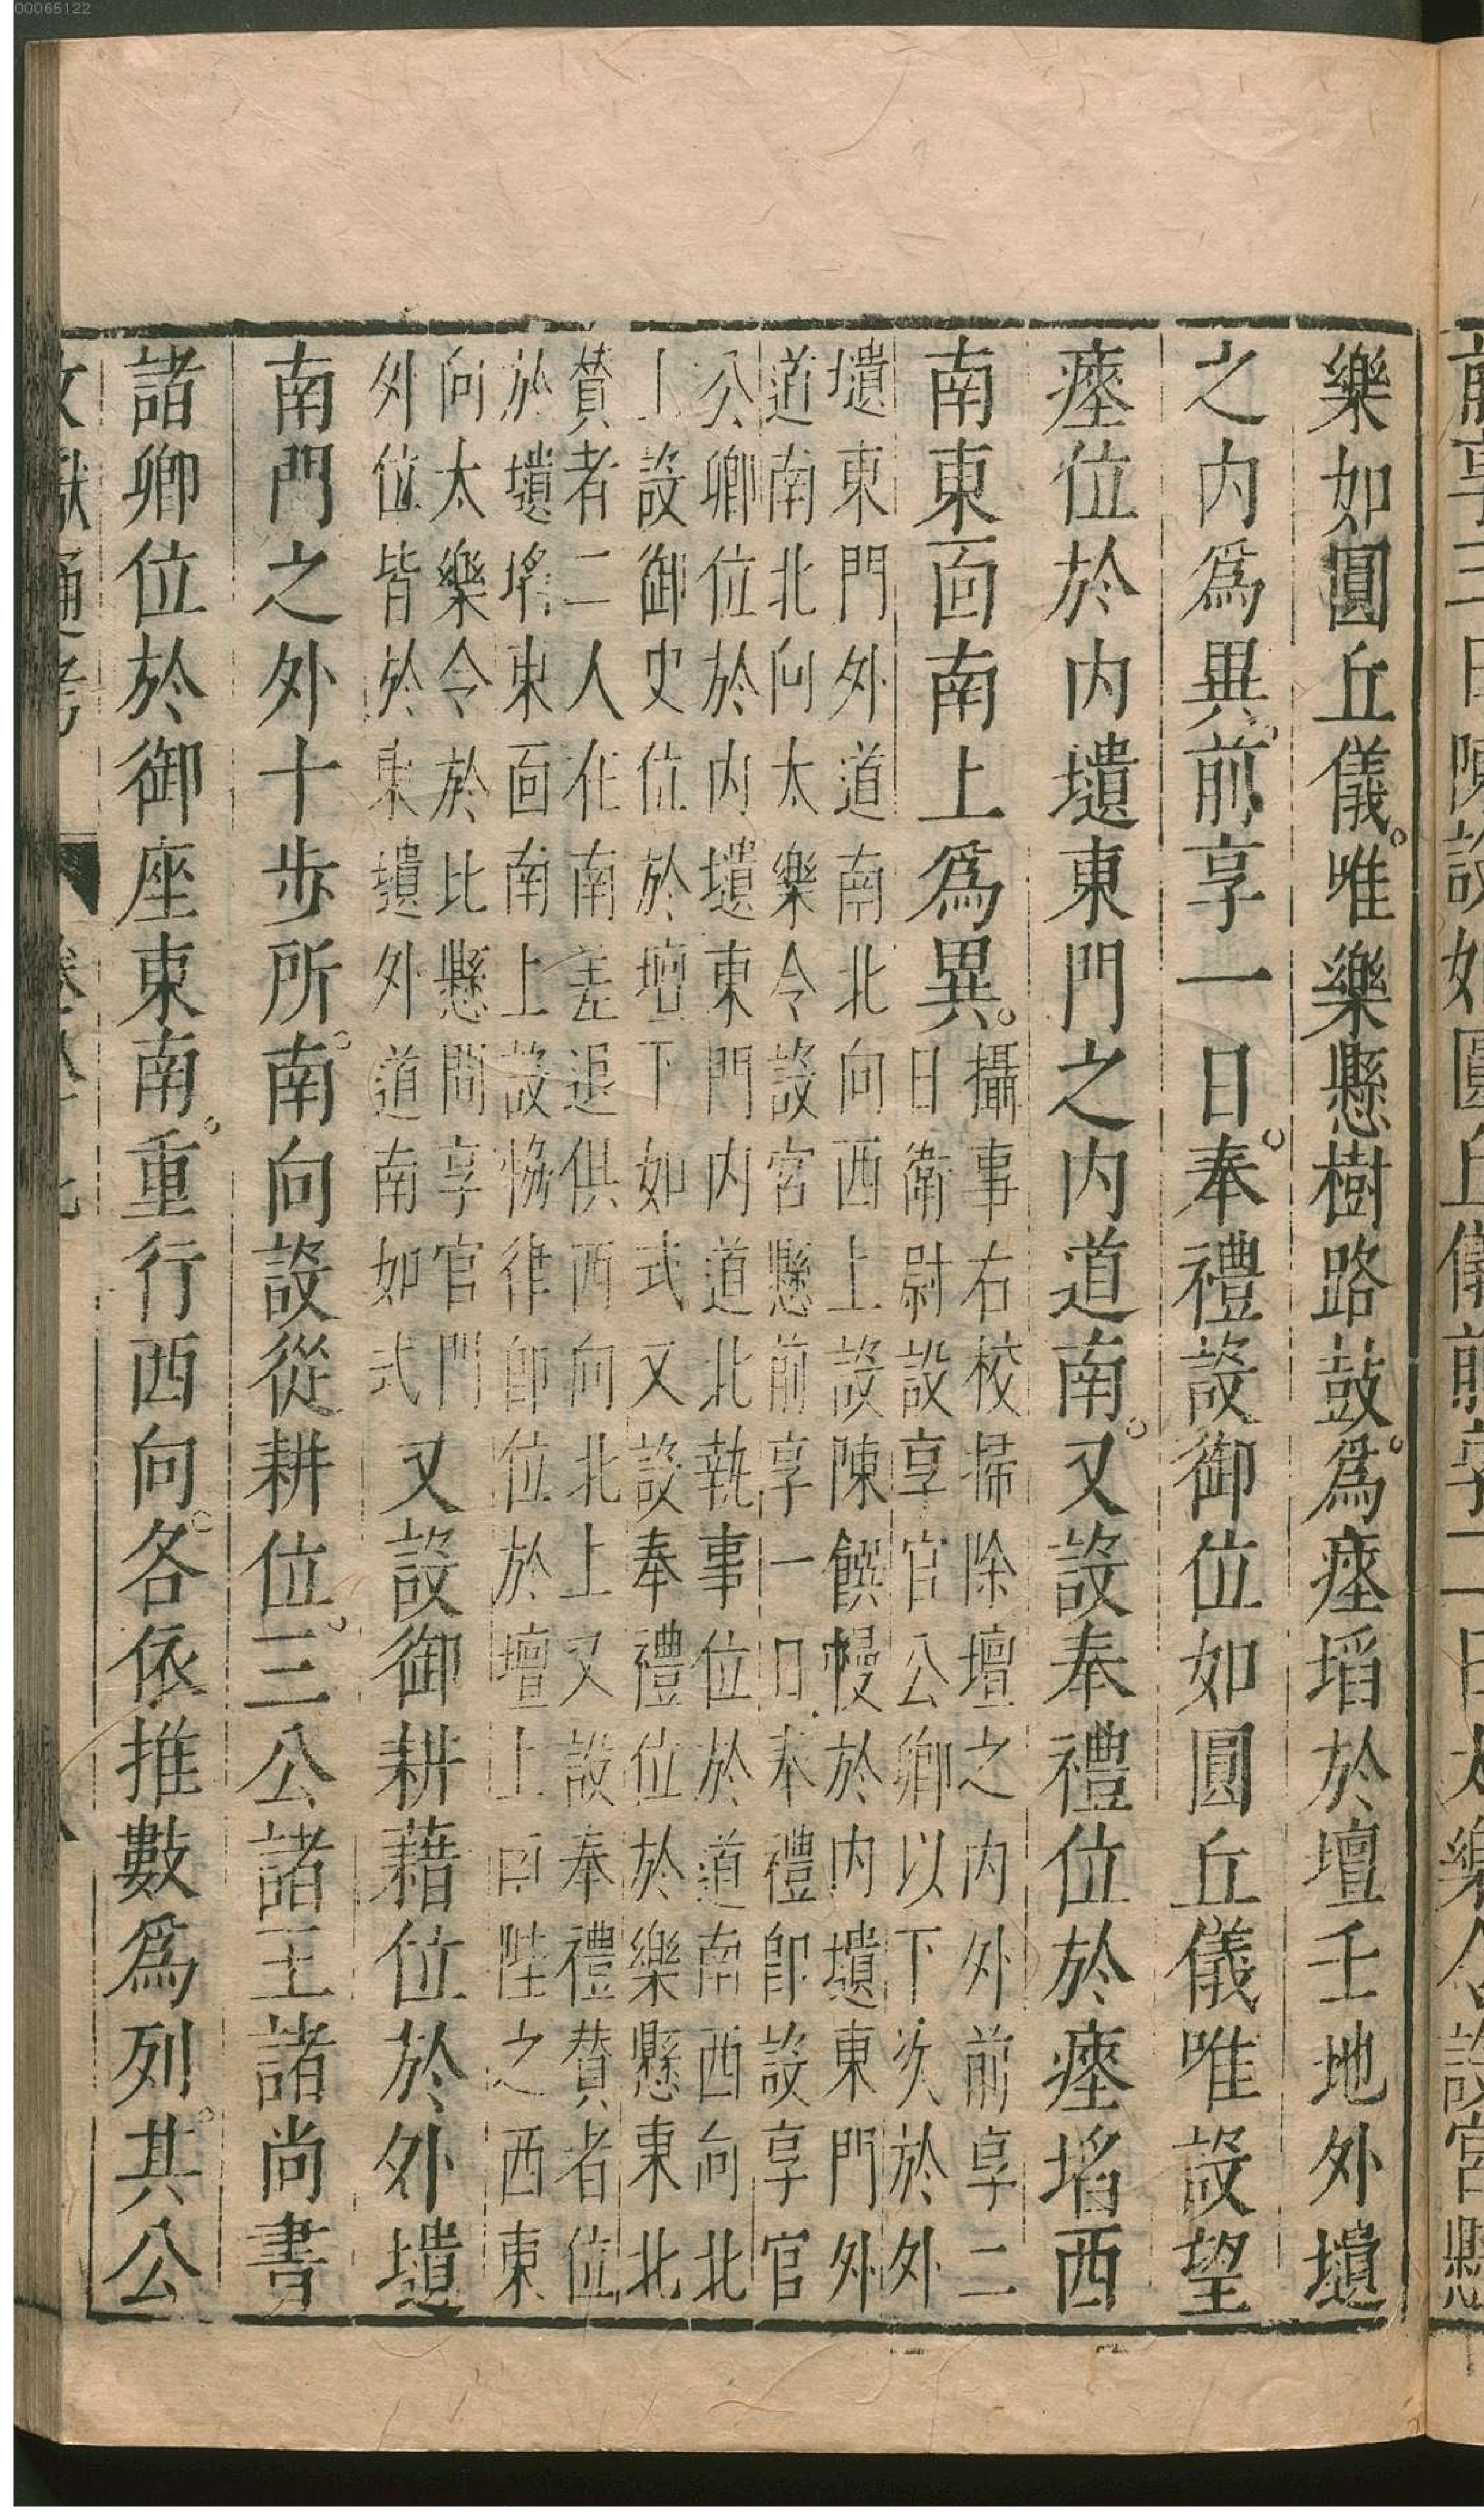 00065122
前享三日陳設如圓丘儀前享二日太樂令設宮懸
樂如圓丘儀。唯樂懸樹路鼓。爲瘞埳於壇壬地外壝
之内爲異。前享一日。奉禮設御位如圓丘儀唯設望
瘞位於内壝東門之内道南。又設奉禮位於瘞埳西
南東面南上爲異。攝事右校掃除壇之内外前享二
日衛尉設享官公卿以下次於外
壝東門外道南北向西上設陳饌幔於内壝東門外
道南北向太樂令設宮懸前享一日奉禮卽設享官
公卿位於内壝東門内道北執事位於道南西向北
上設御史位於壇下如式又設奉禮位於樂懸東北
賛者二人在南差退俱西向北上又設奉禮賛者位
於壝埳東面南上設協律郎位於壇上南陛之西東
向太樂令於比懸間享官門
外位皆於東壝外道南如式又設御耕藉位於外壝
南門之外十步所。南向設從耕位。三公諸王諸尚書
諸卿位於御座東南。重行西向。各依推數爲列。其公
文獻通考